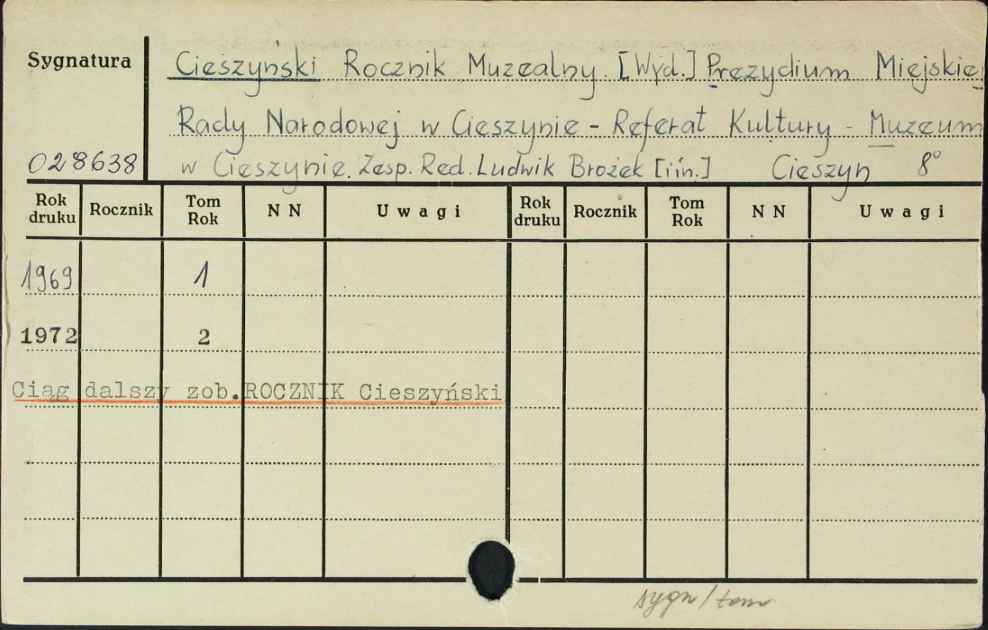 Sygnatura
Cieszyński Rocznik Muzealny. [Wyd.] Prezydium Miejskiej
Rady Narodowej w Cieszynie - Referat Kultury - Muzeum
028638 w Cieszynie. Zesp. Red. Ludwik Brożek [i in.] Cieszyn 8°
Rok druku Rocznik Tom Rok N N Uwagi Rok druku Rocznik Tom Rok N N Uwagi
1969 1
1972 2
Ciąg dalszy zob. ROCZNIK Cieszyński
sygn/tom